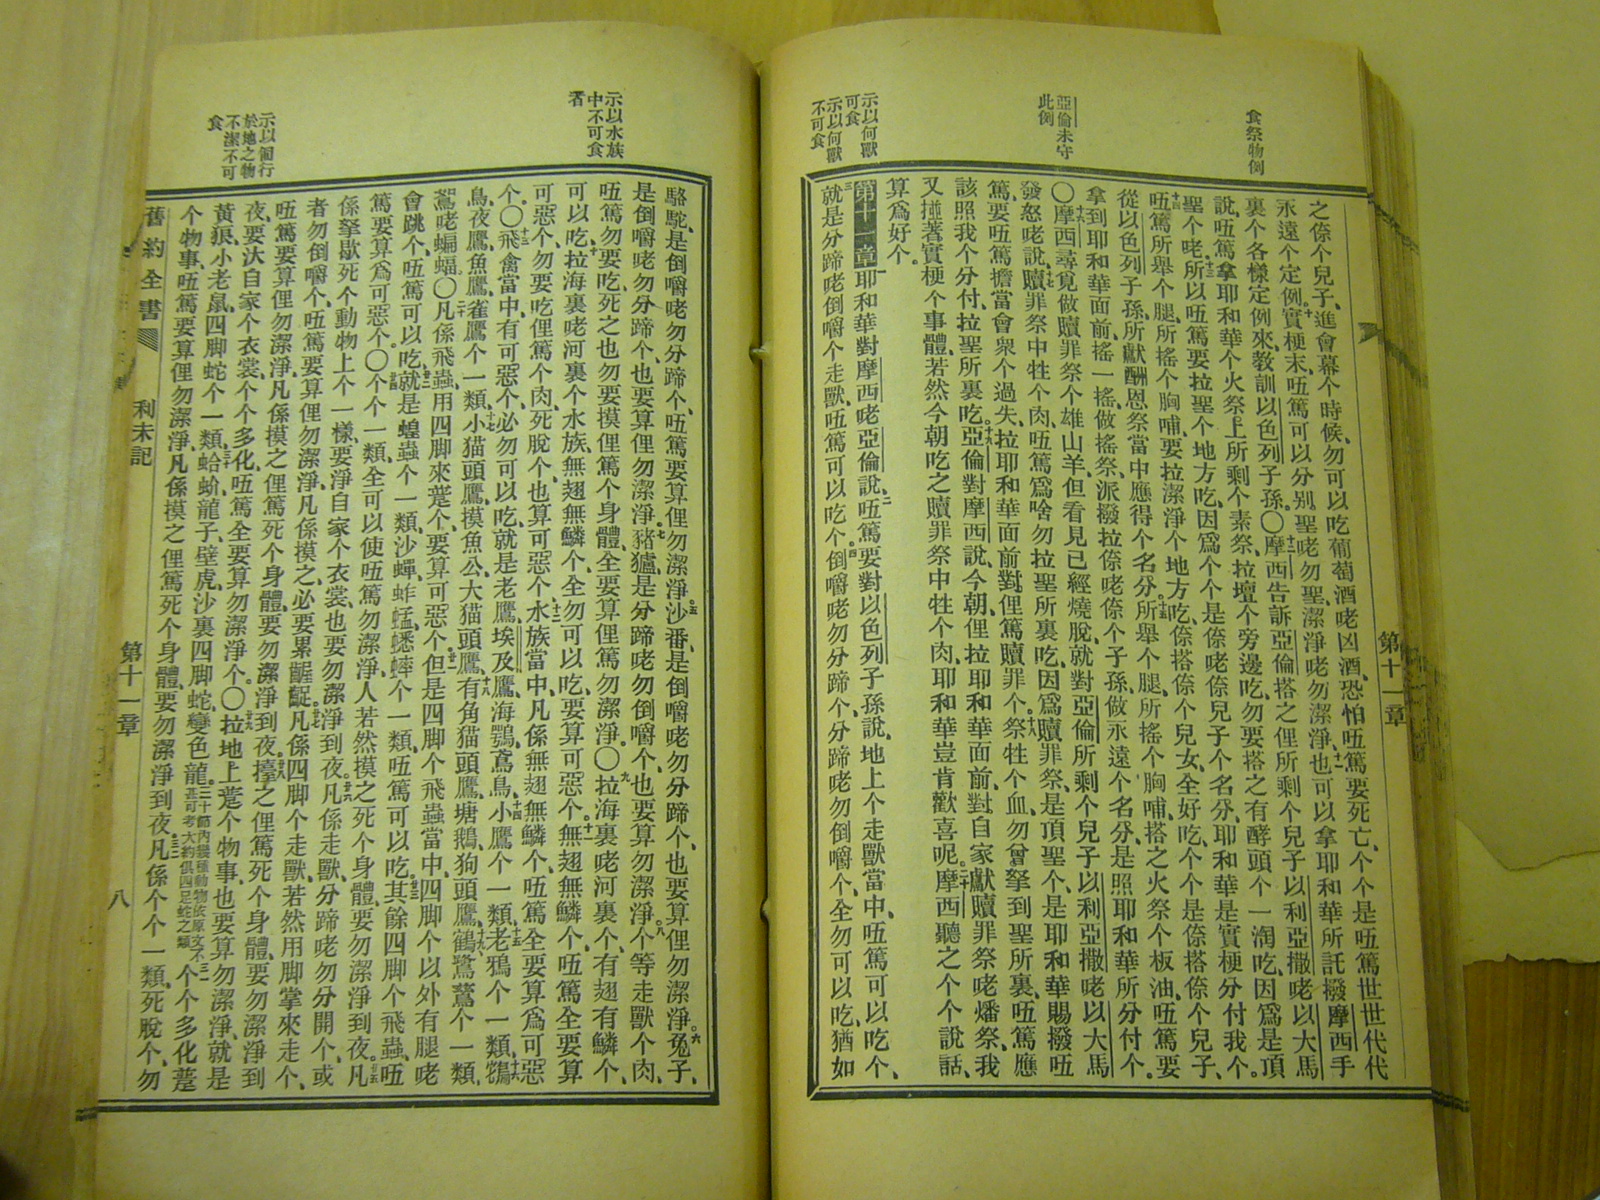 第十一章
食祭物例
亞倫未守
此例
示以何獸
可食
示以何獸
不可食
之倷个兒子、進會幕个時候、勿可以吃葡萄酒咾凶酒、恐怕㕶篤要死亡、个个是㕶篤世世代代
永遠个定例。十實梗末、㕶篤可以分别聖咾勿聖、潔淨咾勿潔淨、十一也可以拿耶和華所託撥摩西手
裏个各樣定例、來教訓以色列子孫。〇十二摩西告訴亞倫、搭之俚所剩个兒子以利亞撒咾以大馬
說、㕶篤拿耶和華个火祭上所剩个素祭、拉壇个旁邊吃、勿要搭之有酵頭个一淘吃、因爲是頂
聖个咾。十三所以㕶篤要拉聖个地方吃、因爲个个是倷咾倷兒子个名分、耶和華是實梗分付我个。
十四㕶篤所舉个腿、所搖个胸哺、要拉潔淨个地方吃、倷搭倷个兒女、全好吃个、个个是倷搭倷个兒子、
從以色列子孫所獻酬恩祭當中應得个名分。十五所舉个腿、所搖个胸哺、搭之火祭个板油、㕶篤要
拿到耶和華面前、搖一搖做搖祭、派撥拉倷咾倷个子孫、做永遠个名分、是照耶和華所分付个。
〇十六摩西尋覓做贖罪祭个雄山羊、但看見已經燒脫、就對亞倫所剩个兒子以利亞撒咾以大馬
發怒咾說、十七贖罪祭中牲个肉、㕶篤爲啥勿拉聖所裏吃、因爲贖罪祭、是頂聖个、是耶和華賜撥㕶
篤、要㕶篤擔當會衆个過失、拉耶和華面前、對俚篤贖罪个。十八祭牲个血、勿曾拏到聖所裏、㕶篤應
該照我个分付、拉聖所裏吃。十九亞倫對摩西說、今朝、俚拉耶和華面前、對自家獻贖罪祭咾燔祭、我
又撞著實梗个事體、若然今朝吃之贖罪祭中牲个肉、耶和華豈肯歡喜呢。二十摩西聽之个个說話、
算爲好个。
第十一章一耶和華對摩西咾亞倫說、二㕶篤要對以色列子孫說、地上个走獸當中、㕶篤可以吃个、
三就是分蹄咾倒嚼个走獸、㕶篤可以吃个。四倒嚼咾勿分蹄个、分蹄咾勿倒嚼个、全勿可以吃、猶如
示以水族
中不可食
者
示以匍行
於地之物
不潔不可
食
駱駝、是倒嚼咾勿分蹄个、㕶篤要算俚勿潔淨。五沙番、是倒嚼咾勿分蹄个、也要算俚勿潔淨。六兔子、
是倒嚼咾勿分蹄个、也要算俚勿潔淨。七豬玀是分蹄咾勿倒嚼个、也要算勿潔淨。八个等走獸个肉、
㕶篤勿要吃、死之也勿要摸俚篤个身體、全要算俚篤勿潔淨。〇九拉海裏咾河裏个、有翅有鱗个、
可以吃。十拉海裏咾河裏个水族、無翅無鱗个、全勿可以吃、要算可惡个。十一無翅無鱗个、㕶篤全要算
可惡个、勿要吃俚篤个肉、死脫个、也算可惡个。十二水族當中、凡係無翅無鱗个、㕶篤全要算爲可惡
个。〇十三飛禽當中、有可惡个、必勿可以吃、就是老鷹、埃及鷹、海鶚、十四鳶鳥、小鷹个一類、十五老鴉个一類、十六鴕
鳥、夜鷹、魚鷹、雀鷹个一類、十七小猫頭鷹、摸魚公、大猫頭鷹、十八有角猫頭鷹、塘鵝、狗頭鷹、十九鶴、鷺鷥个一類、
䳭咾蝙蝠。〇二十凡係飛蟲、用四脚來蹔个、要算可惡个。廿一但是四脚个飛蟲當中、四脚个以外有腿咾
會跳个、㕶篤可以吃。廿二就是蝗蟲个一類、沙蟬、蚱蜢、蟋蟀个一類、㕶篤可以吃。廿三其餘四脚个飛蟲、㕶
篤要算爲可惡个。〇廿四个个一類、全可以使㕶篤勿潔淨、人若然摸之死个身體、要勿潔淨到夜。廿五凡
係拏歇死个動物上个一樣、要淨自家个衣裳、也要勿潔淨到夜。廿六凡係走獸、分蹄咾勿分開个、或
者勿倒嚼个、㕶篤要算俚勿潔淨、凡係摸之、必要累齷齪。廿七凡係四脚个走獸、若然用脚掌來走个、
㕶篤要算俚勿潔淨、凡係摸之俚篤死个身體、要勿潔淨到夜。廿八擡之俚篤死个身體、要勿潔淨到
夜、要汏自家个衣裳、个个多化、㕶篤全要算勿潔淨个。〇廿九拉地上蹔个物事、也要算勿潔淨、就是
黃狼、小老鼠、四脚蛇个一類、三十蛤蚧、龍子、壁虎、沙裏四脚蛇、變色龍。三十節內幾種動物依原文不甚可考大約俱四足蛇之類三一个个多化蹔
个物事、㕶篤要算俚勿潔淨、凡係摸之俚篤死个身體、要勿潔淨到夜。三二凡係个个一類、死脫个、勿
舊約全書 利未記 第十一章 八